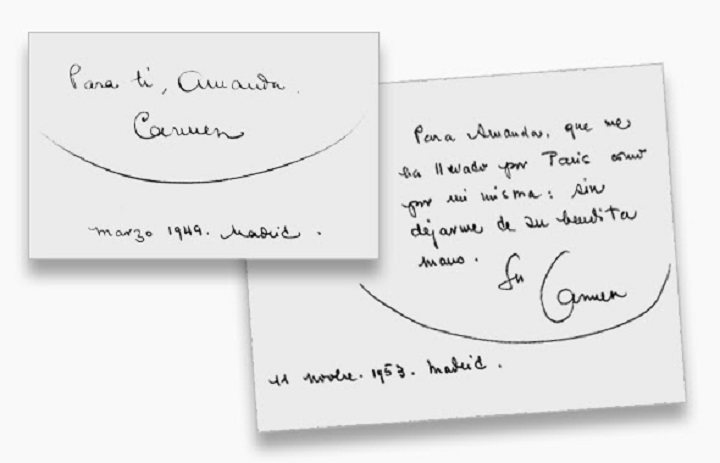 Para ti, Amanda.
Carmen
marzo 1949. Madrid.
Para Amanda, que me
ha llevado por París como
por mi misma: sin
dejarme de su bendita
mano. Su Carmen
11 novbre. 1953. Madrid.